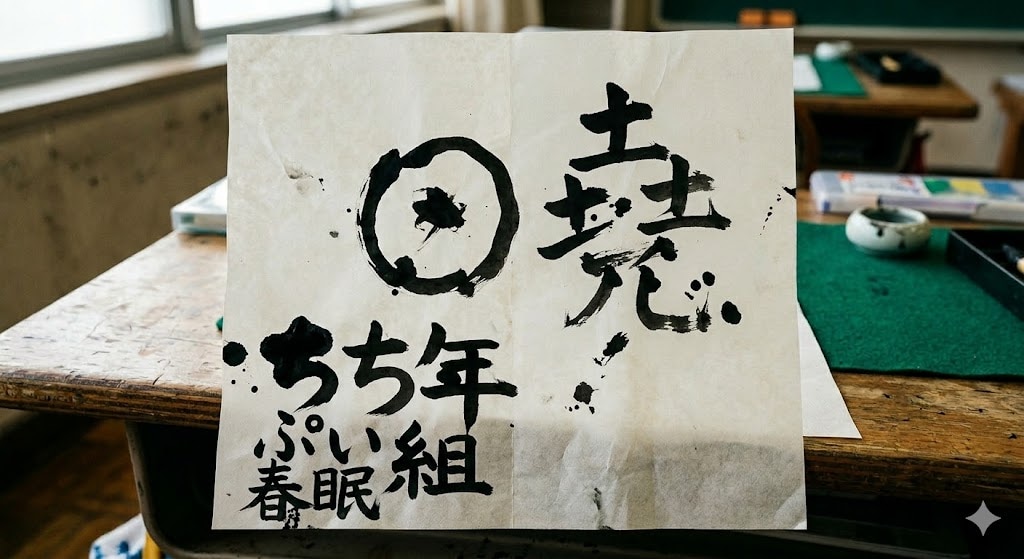 堯
ちち年
ぷい組
春眠